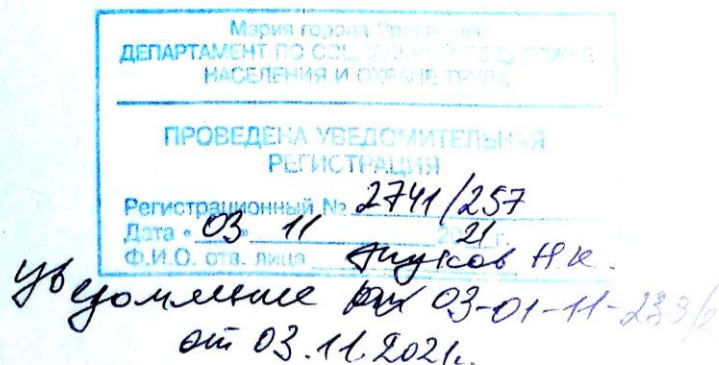 Мэрия города
ДЕПАРТАМЕНТ ПО СОЦИАЛЬНОЙ ПОДДЕРЖКЕ
НАСЕЛЕНИЯ И ОХРАНЕ ТРУДА
ПРОВЕДЕНА УВЕДОМИТЕЛЬНАЯ
РЕГИСТРАЦИЯ
Регистрационный № 2741/257
Дата « 03 » 11 2021 г.
Ф.И.О. отв. лица Н.К.
уведомление 03-01-11-239/2
от 03.11.2021г.